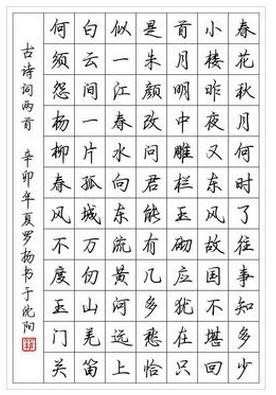 春花秋月何时了往事知多少
小楼昨夜又东风故国不堪回
首月明中雕栏玉砌应犹在只
是朱颜改问君能有几多愁恰
似一江春水向东流黄河远上
白云间一片孤城万仞山羌笛
何须怨杨柳春风不度玉门关
古诗词两首 辛卯年夏罗扬书于沈阳